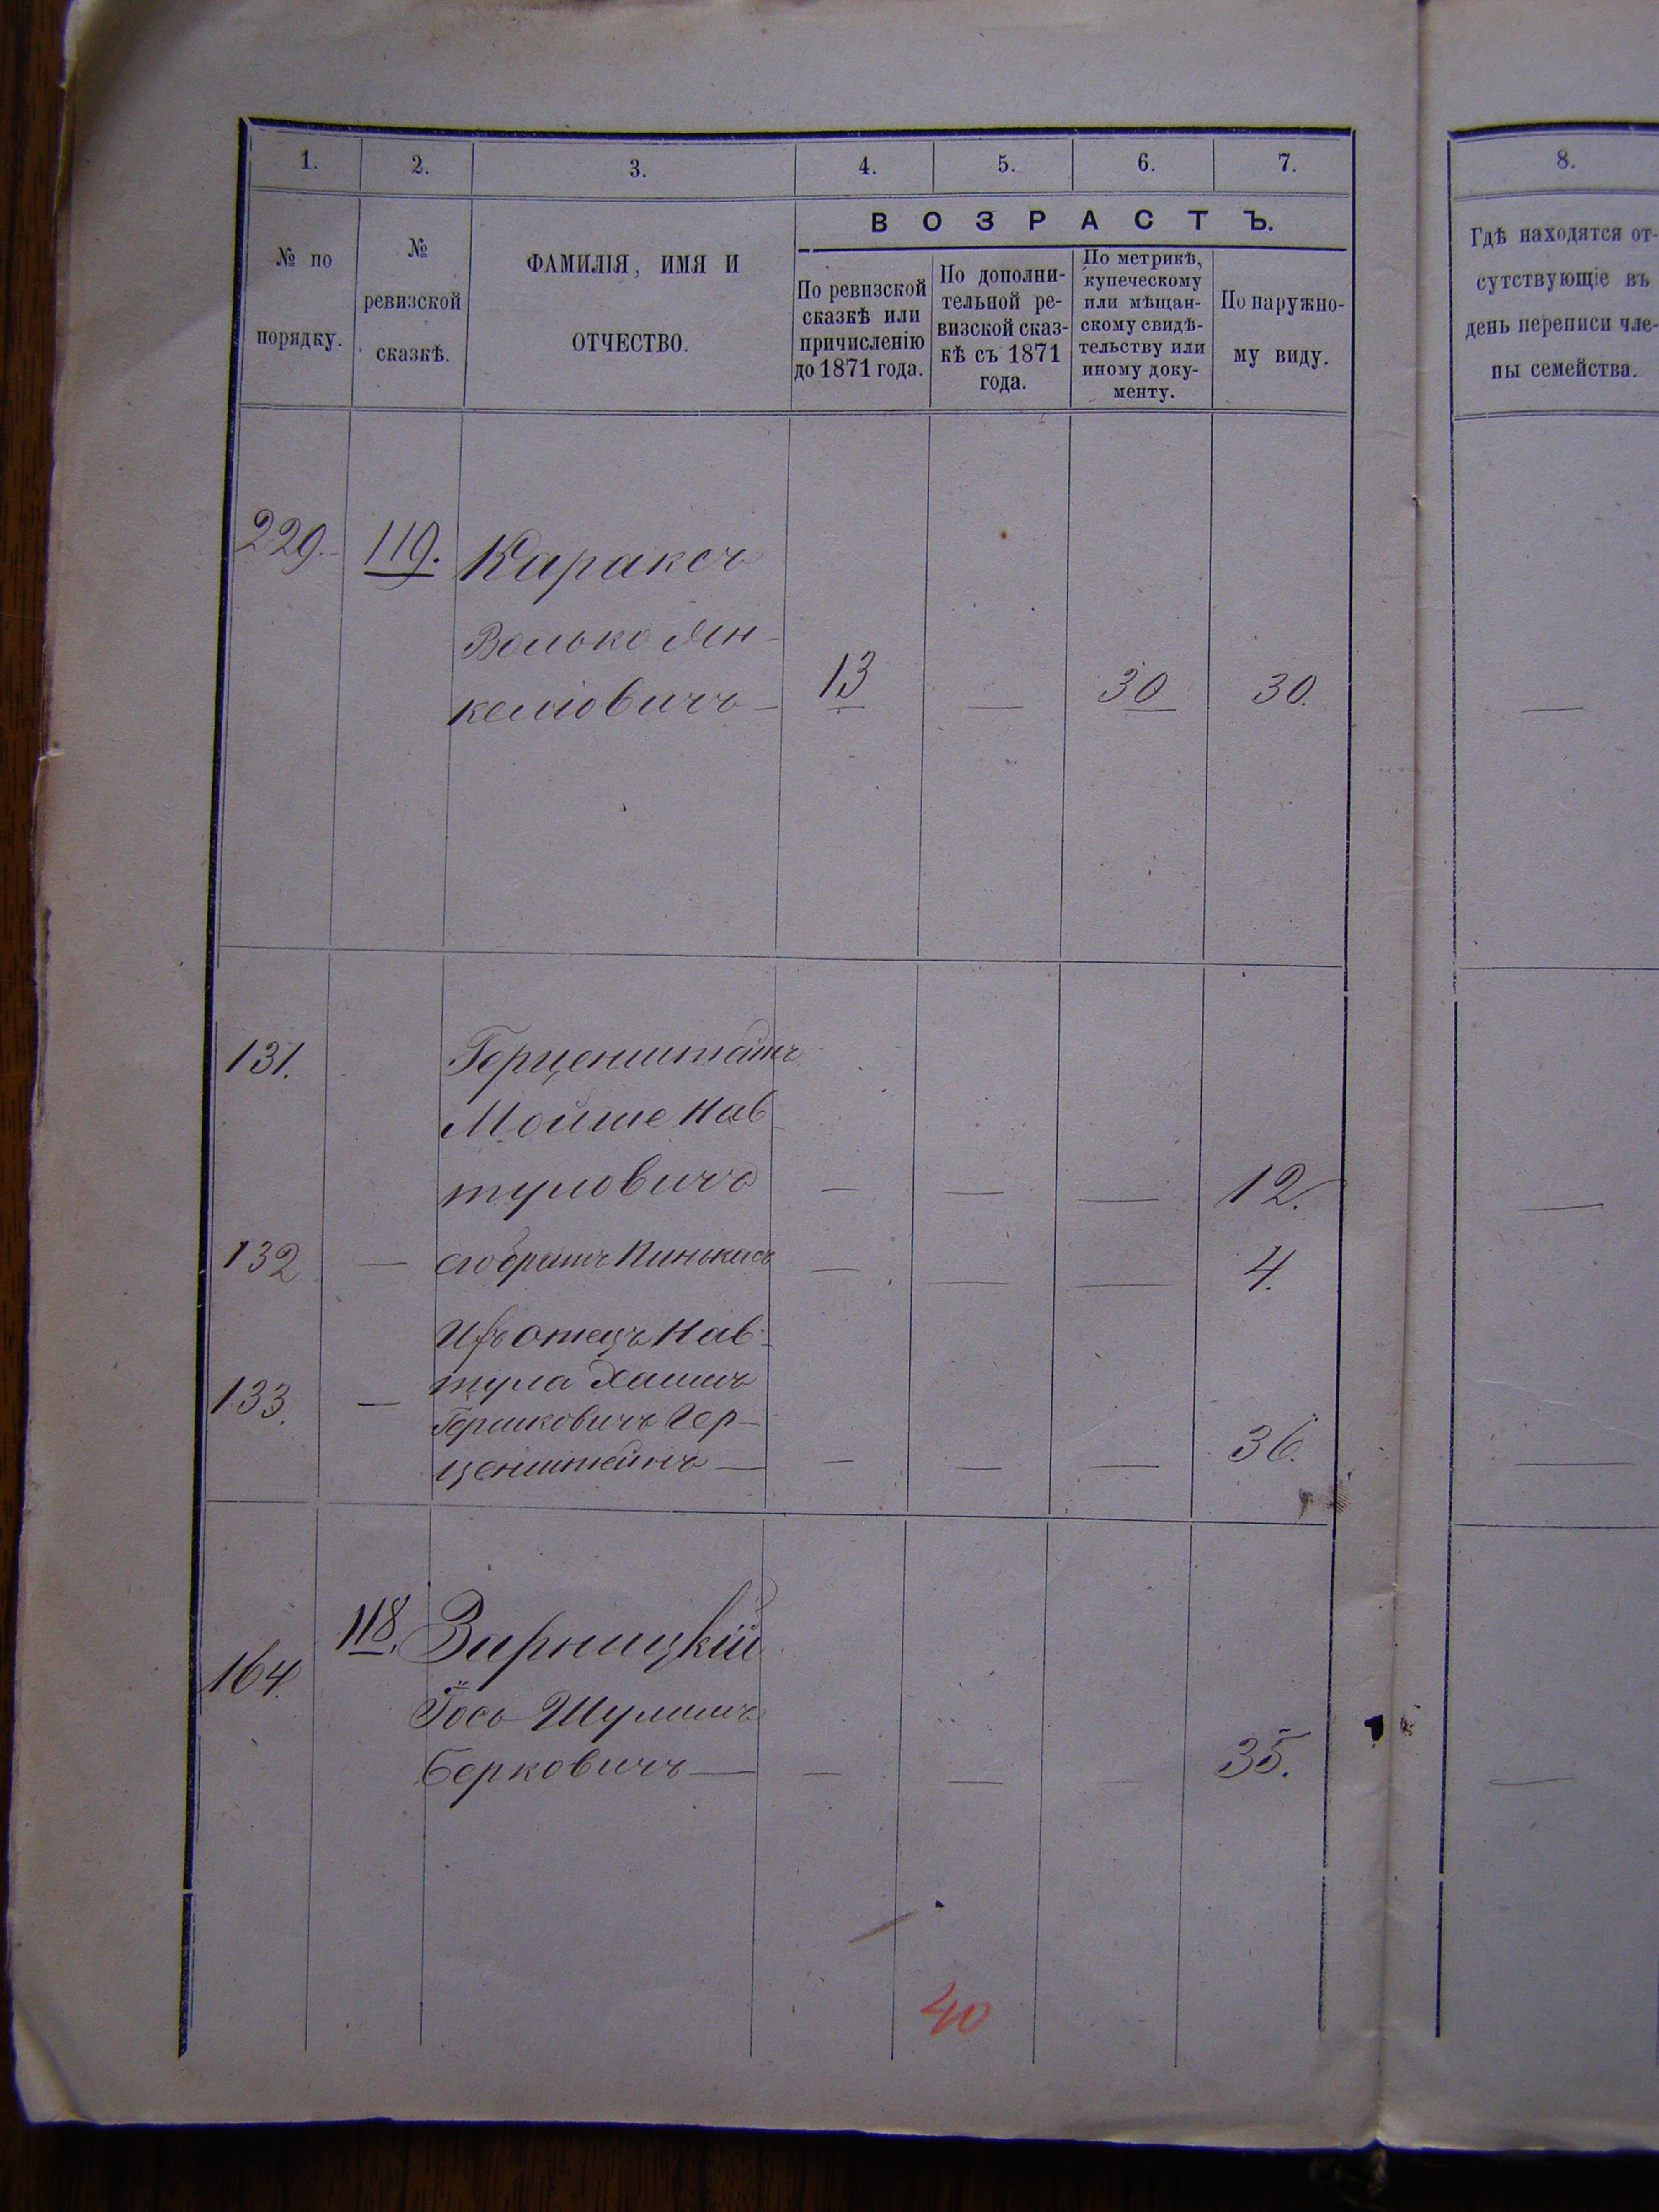 1. 2. 3. 4. 5. 6. 7. 8.
ВОЗРАСТЪ.
№ по
порядку.
№
ревизской
сказкѣ.
ФАМИЛІЯ, ИМЯ И
ОТЧЕСТВО.
По ревизской
сказкѣ или
причисленію
до 1871 года.
По дополни-
тельной ре-
визской сказ-
кѣ съ 1871
года.
По метрикѣ,
купеческому
или мѣщан-
скому свидѣ-
тельству или
иному доку-
менту.
По наружно-
му виду.
Гдѣ находятся от-
сутствующіе въ
день переписи чле-
ны семейства.
229. 119. Караксъ
Волько Ян-
келіовичъ — 13 — 30 30. —
131. Герценштейнъ
Мойше Нав-
туловичъ — — — 12. —
132 — его братъ Пинькасъ — — — 4.
Ихъ отецъ Нав-
133. — тула Хаимъ
Гершковичъ Гер-
ценштейнъ — — — — 36. —
118. Зарницкій
164. Іось-Шулимъ
Берковичъ — — — — 35. —
40